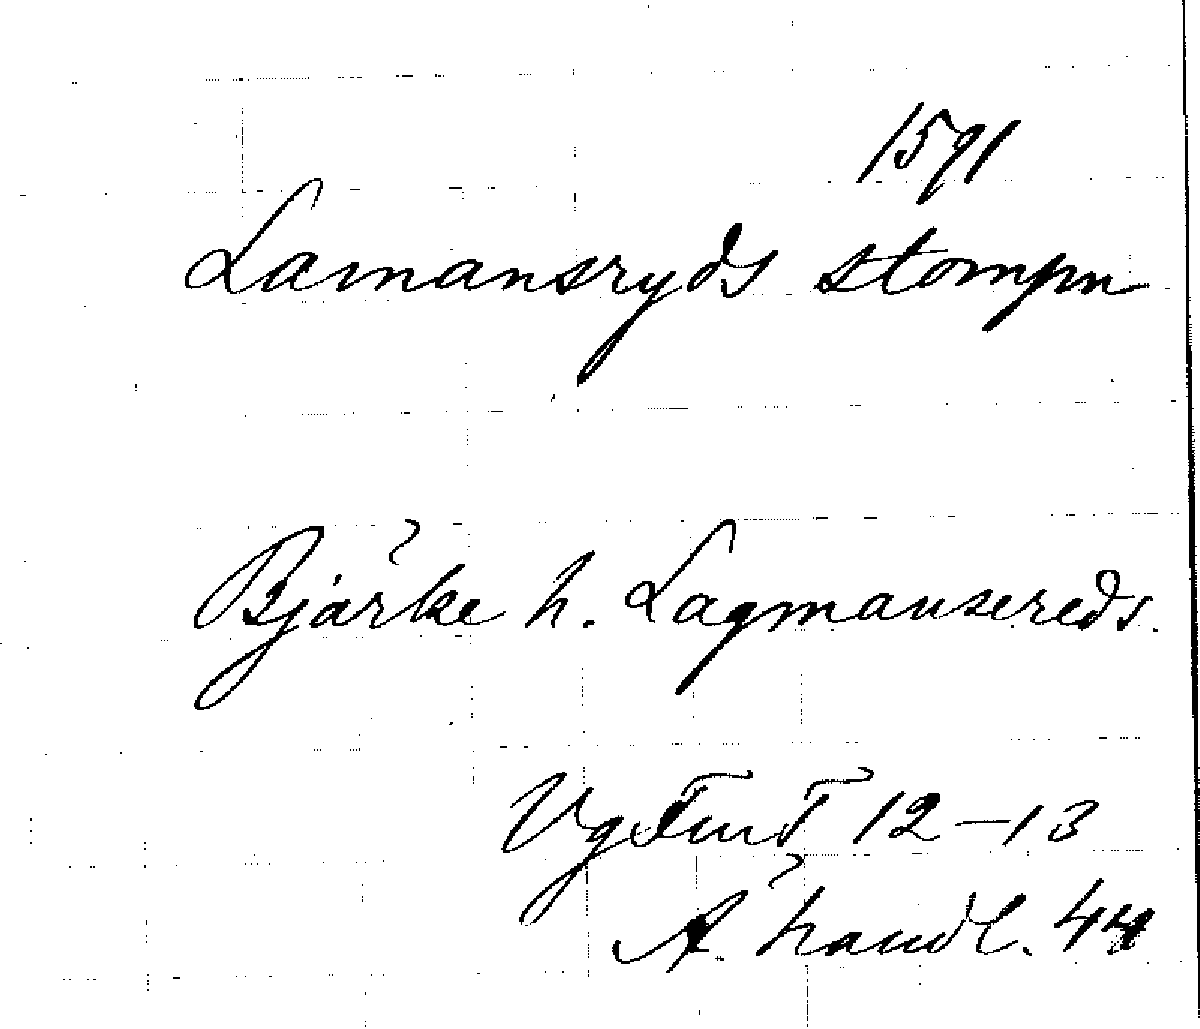 1591
Lamansryds stompn
Bjärke h. Lagmansereds.
Vg FinT 12-13
Ä. handl. 44